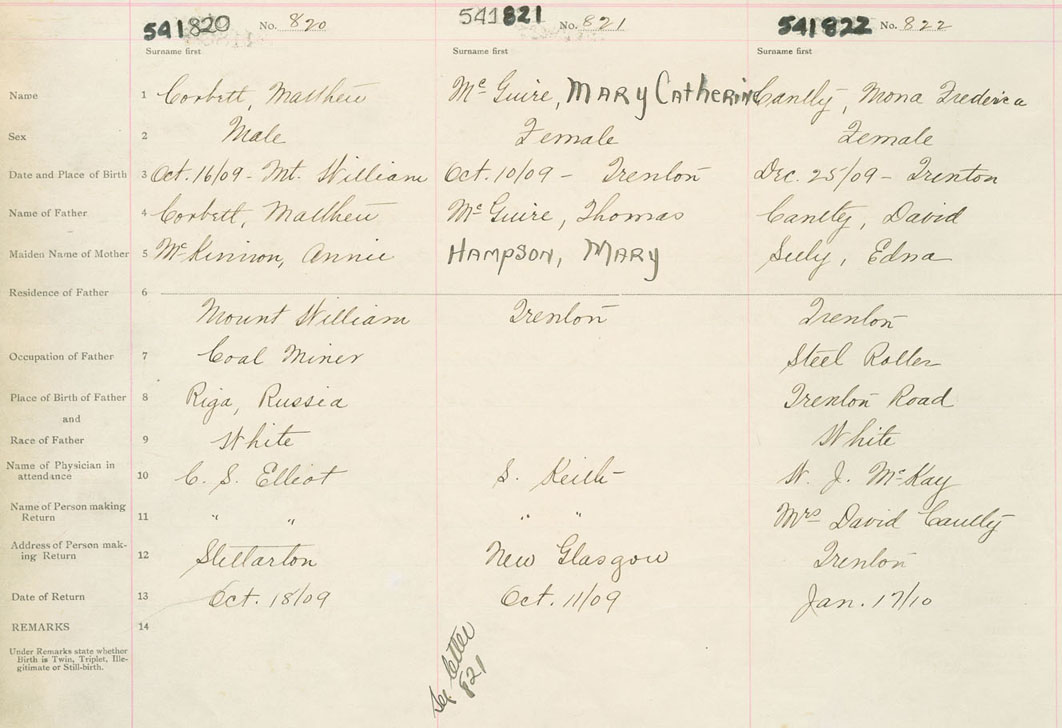 541820 No. 820 541821 No. 821 541822 No. 822
Surname first Surname first Surname first
Name 1 Corbett, Matthew McGuire, MARY CatheriNe Cantly, Mona Frederica
Sex 2 Male Female Female
Date and Place of Birth 3 Oct. 16/09 - Mt. William Oct. 10/09 - Trenton Dec. 25/09 - Trenton
Name of Father 4 Corbett, Matthew McGuire, Thomas Cantly, David
Maiden Name of Mother 5 McKinnon, Annie HAMPSON, MARY Suly, Edna
Residence of Father 6
Mount William Trenton Trenton
Occupation of Father 7 Coal Miner Steel Roller
Place of Birth of Father 8 Riga, Russia Trenton Road
and
Race of Father 9 White White
Name of Physician in
attendance 10 C. S. Elliot S. Keith W. J. McKay
Name of Person making
Return 11 " " " " Mrs David Cantly
Address of Person mak-
ing Return 12 Stellarton New Glasgow Trenton
Date of Return 13 Oct. 18/09 Oct. 11/09 Jan. 17/10
REMARKS 14
Under Remarks state whether
Birth is Twin, Triplet, Ille-
gitimate or Still-birth.
See letter
821